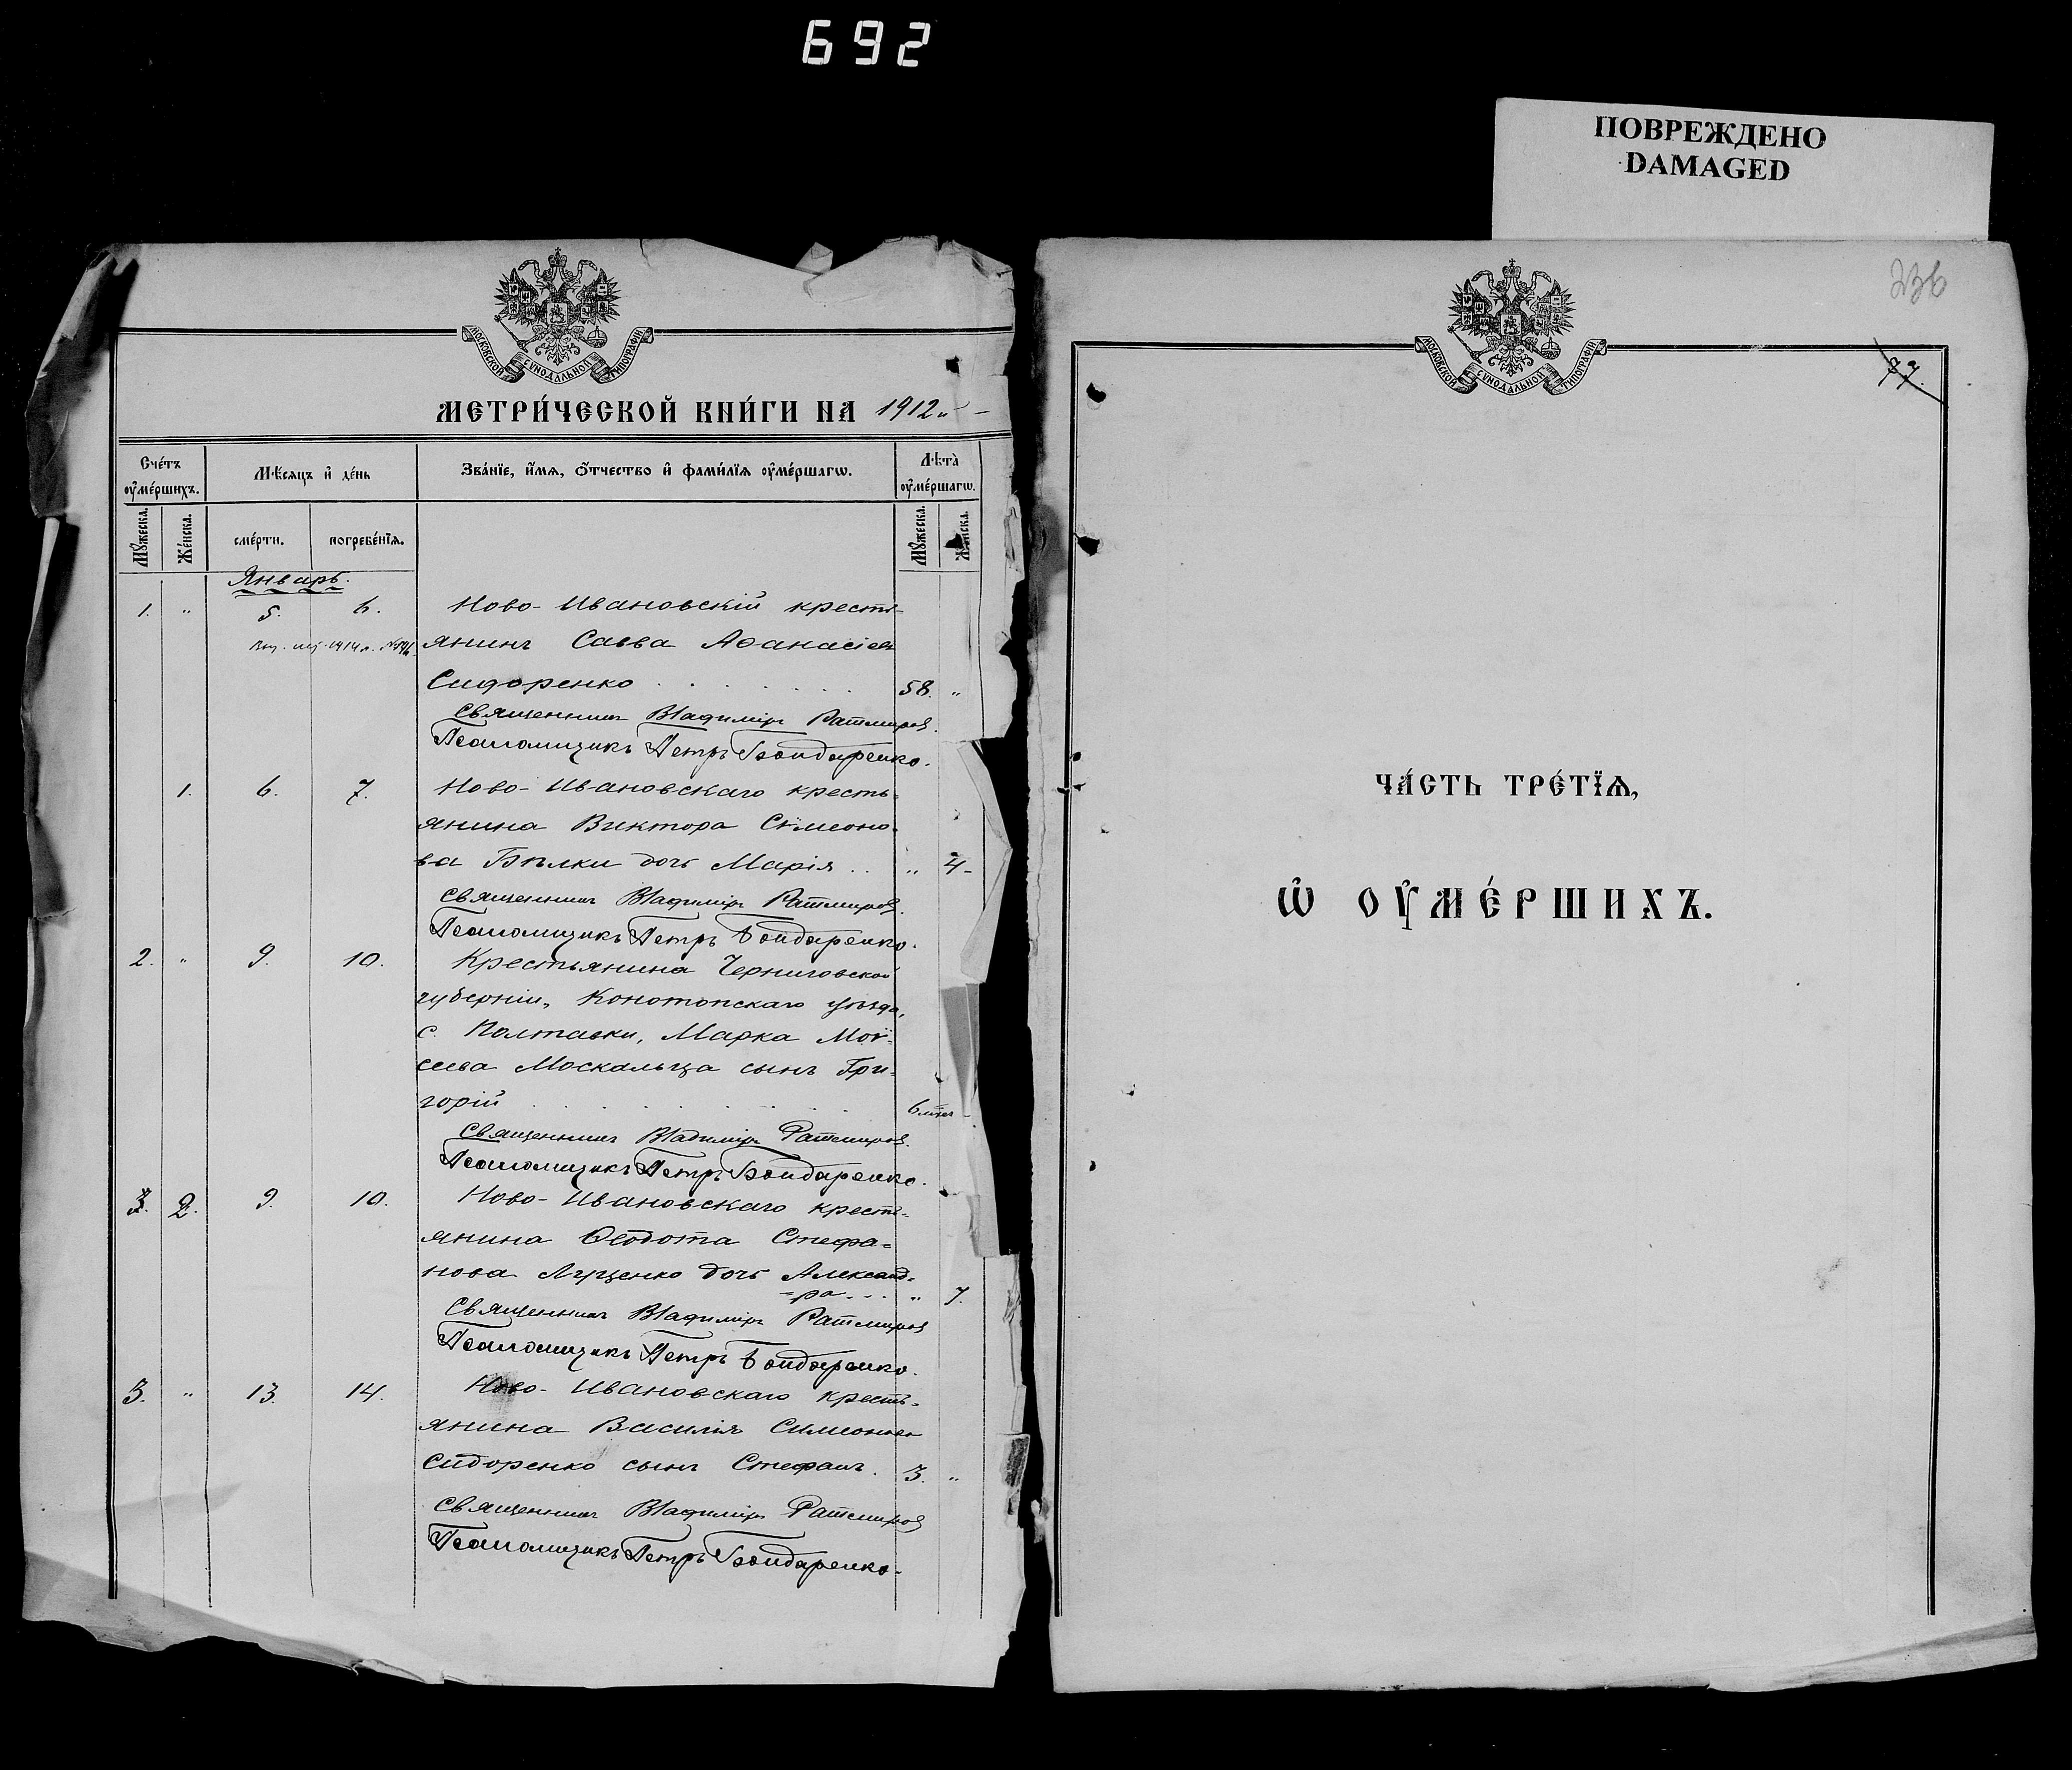 692
ПОВРЕЖДЕНО
DAMAGED
МОСКОВСКОЙ СУНОДАЛЬНОЙ ТИПОГРАФІИ
МЕТРИ́ЧЕСКОЙ КНИ́ГИ НА 1912
Сче́тъ ᲂу҆ме́ршихъ.
Мѣ́сяцъ и҆ де́нь
Зва́нїе, и҆́мя, ѻ҆́тчество и҆ фами́лїя ᲂу҆ме́ршагѡ.
Лѣта̀ ᲂу҆ме́ршагѡ.
Мꙋ́жеска.
Же́нска.
сме́рти.
погребе́нїя.
Мꙋ́жеска.
Же́нска.
Январь.
1. " 5. 6. Ново-Ивановскій кресть-
янинъ Савва Аѳанасіев
Сидоренко . . . . . . . 58. "
Священникъ Владиміръ Ратмиров
Псаломщикъ Петръ Бондаренко.
1. 6. 7. Ново-Ивановскаго кресть=
янина Виктора Сѵмеоно-
ва Бѣлки дочь Марія . . " 4-
Священникъ Владиміръ Ратмиров.
Псаломщикъ Петръ Бондаренко.
2. " 9. 10. Крестьянина Черниговской
губерніи, Конотопскаго уѣзда,
с. Полтавки, Марка Мої-
сеева Москальца сынъ Гри-
горій . . . . . . . 6 мѣс -
Священникъ Владиміръ Ратмиров.
Псаломщикъ Петръ Бондаренко.
3. 2. 9. 10. Ново-Ивановскаго кресть=
янина Ѳеодота Стефа=
нова Луценко дочь Александ=
=ра . . . " 7.
Священникъ Владиміръ Ратмиров
Псаломщикъ Петръ Бондаренко.
3. " 13. 14. Ново-Ивановскаго кресть=
янина Василія
Сидоренко сынъ Стефанъ . 3. "
Священникъ Владиміръ Ратмиров
Псаломщикъ Петръ Бондаренко.
236
77.
МОСКОВСКОЙ СУНОДАЛЬНОЙ ТИПОГРАФІИ
ЧА́СТЬ ТРЕ́ТЇѦ,
Ѡ҆ ОУ҆МЕ́РШИХЪ.